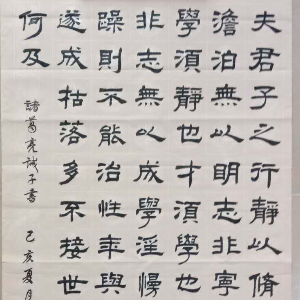 夫君子之行靜以脩
澹泊無以明志非寧
學須靜也才須學也
非志無以成學淫慢
躁則不能治性年與
遂成枯落多不接世
何及
諸葛亮誡子書 己亥夏月